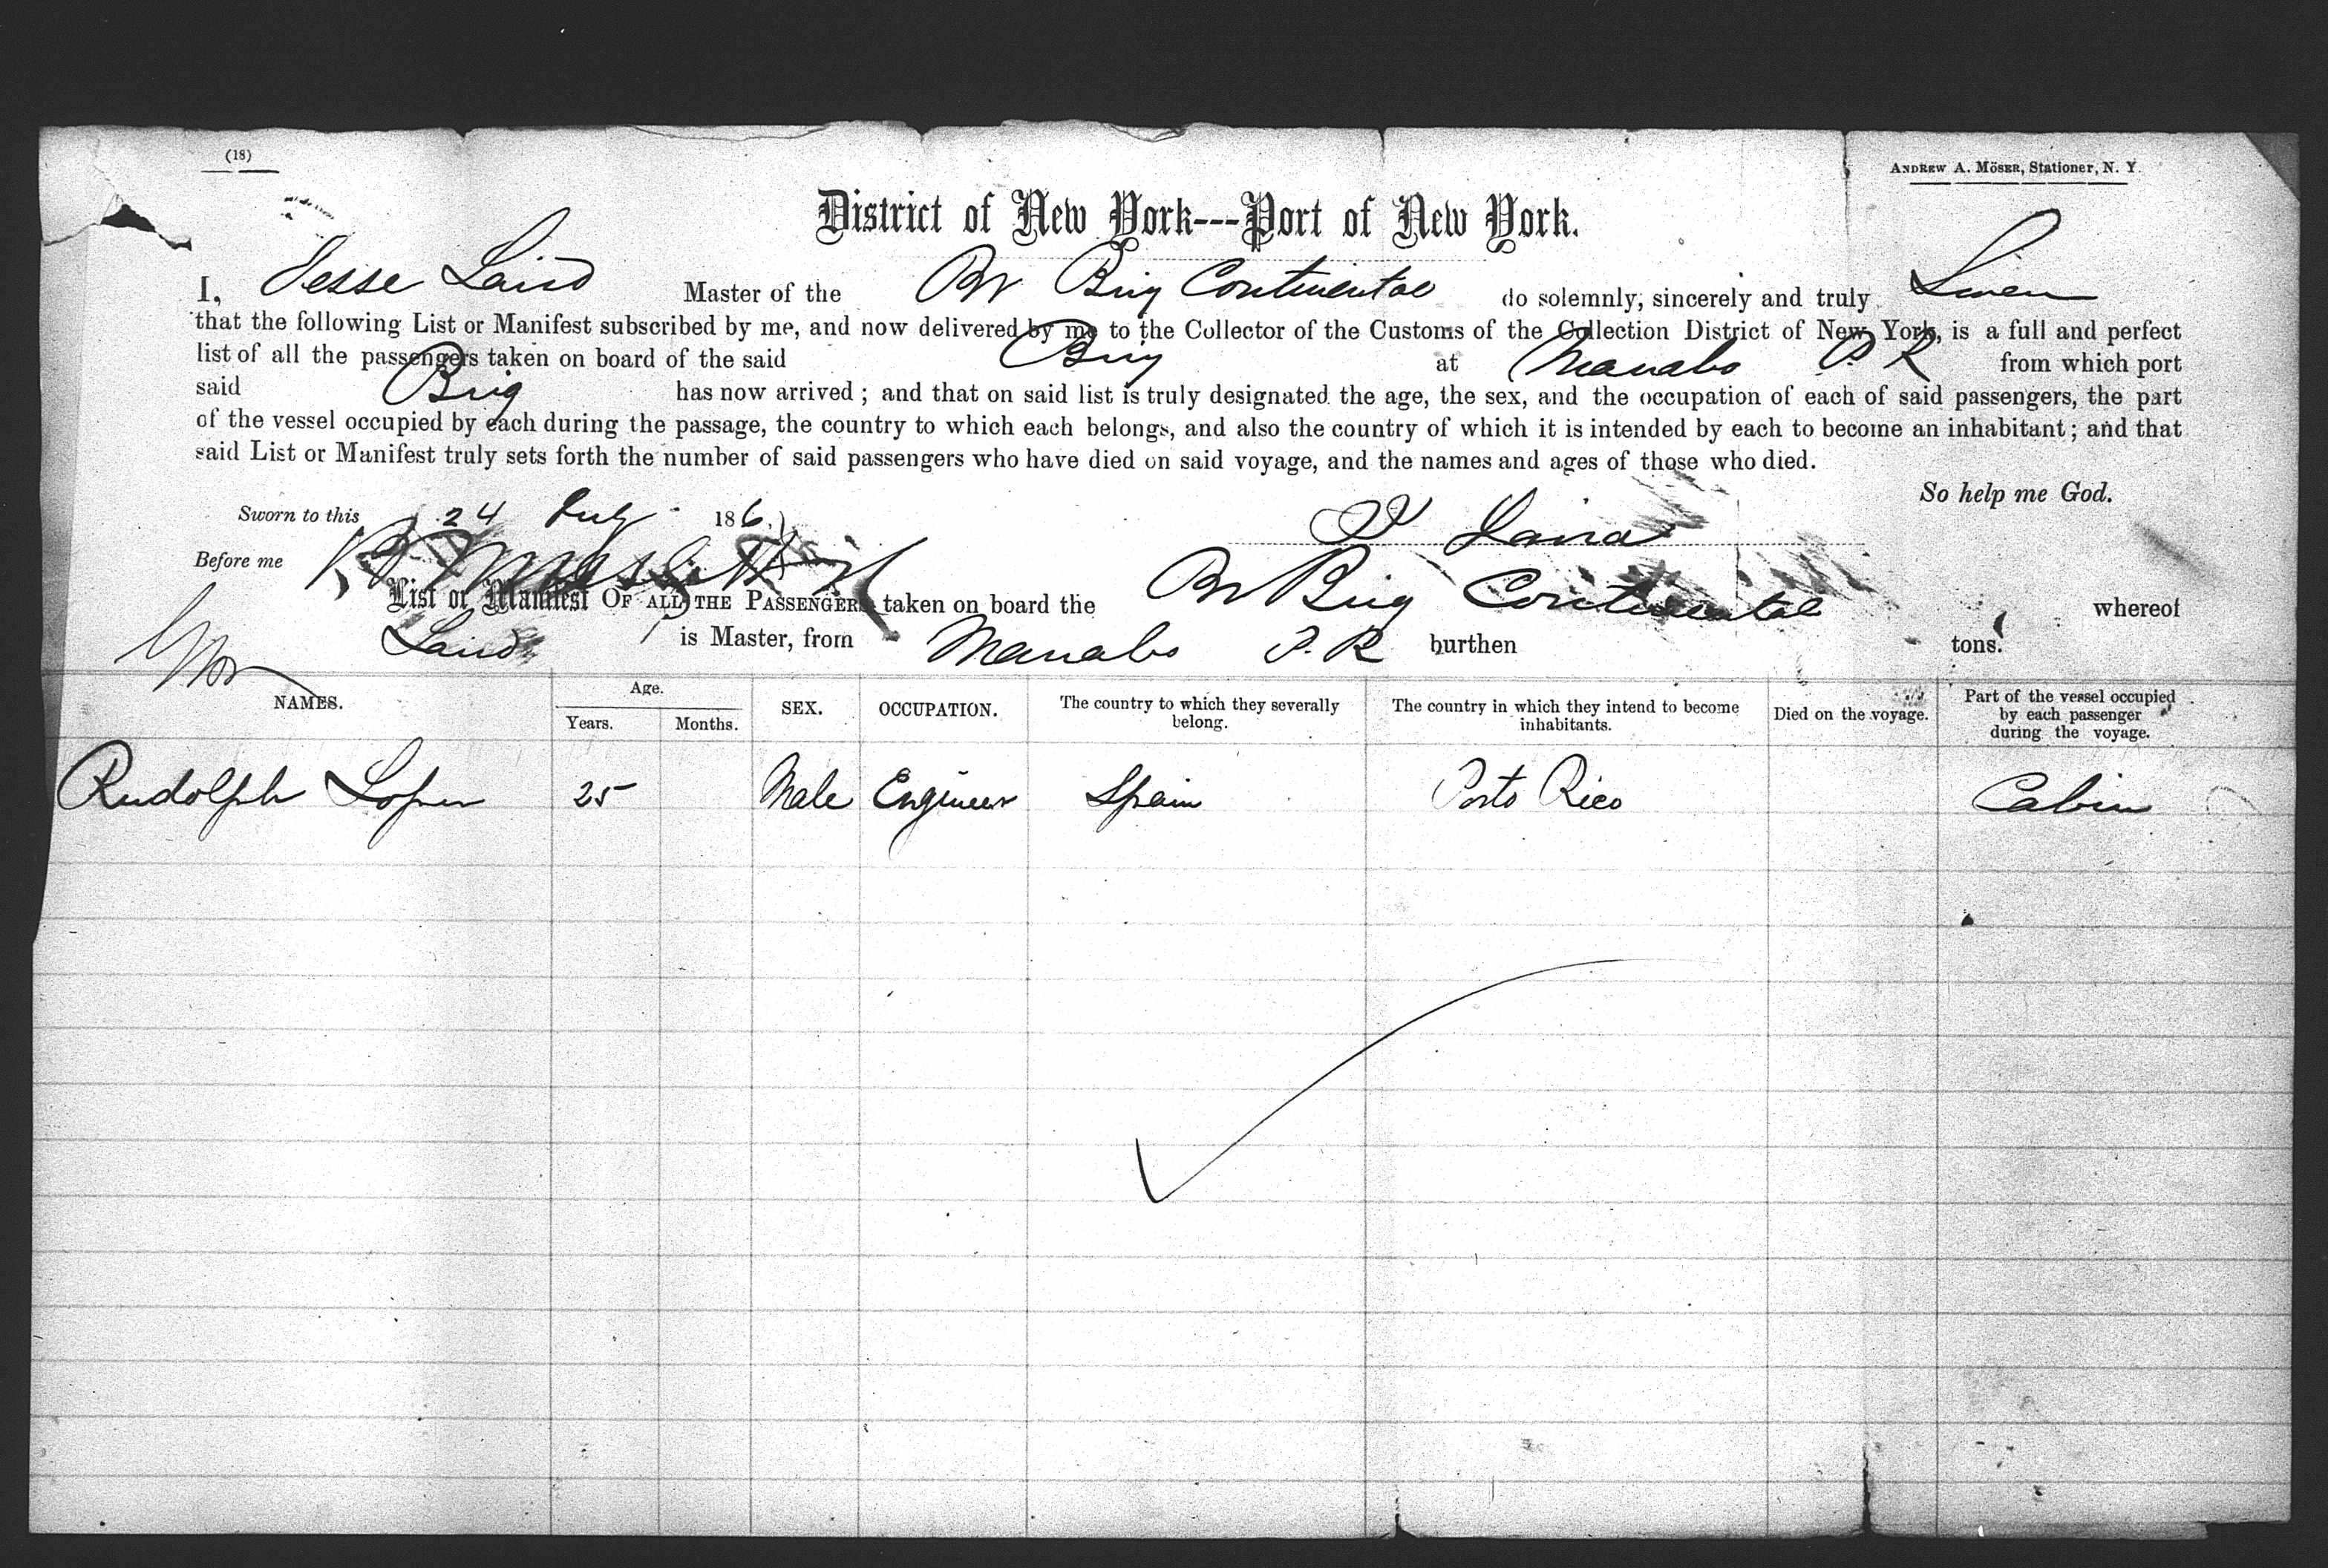 (18)
ANDREW A. MÖSER, Stationer, N. Y.
District of New York---Port of New York.
I, Jesse Laird Master of the Br Brig Continental do solemnly, sincerely and truly Swear
that the following List or Manifest subscribed by me, and now delivered by me to the Collector of the Customs of the Collection District of New York, is a full and perfect
list of all the passengers taken on board of the said Brig at Manabo P. R from which port
said Brig has now arrived; and that on said list is truly designated the age, the sex, and the occupation of each of said passengers, the part
of the vessel occupied by each during the passage, the country to which each belongs, and also the country of which it is intended by each to become an inhabitant; and that
said List or Manifest truly sets forth the number of said passengers who have died on said voyage, and the names and ages of those who died.
So help me God.
Sworn to this 24 July 186
J Laird
Before me
List or Manifest OF ALL THE PASSENGERS taken on board the Br Brig Continental whereof
Laird is Master, from Manabo P. R burthen tons.
NAMES. Age. Years. Months. SEX. OCCUPATION. The country to which they severally belong. The country in which they intend to become inhabitants. Died on the voyage. Part of the vessel occupied by each passenger during the voyage.
Rudolph Loper 25 Male Engineer Spain Porto Rico Cabin